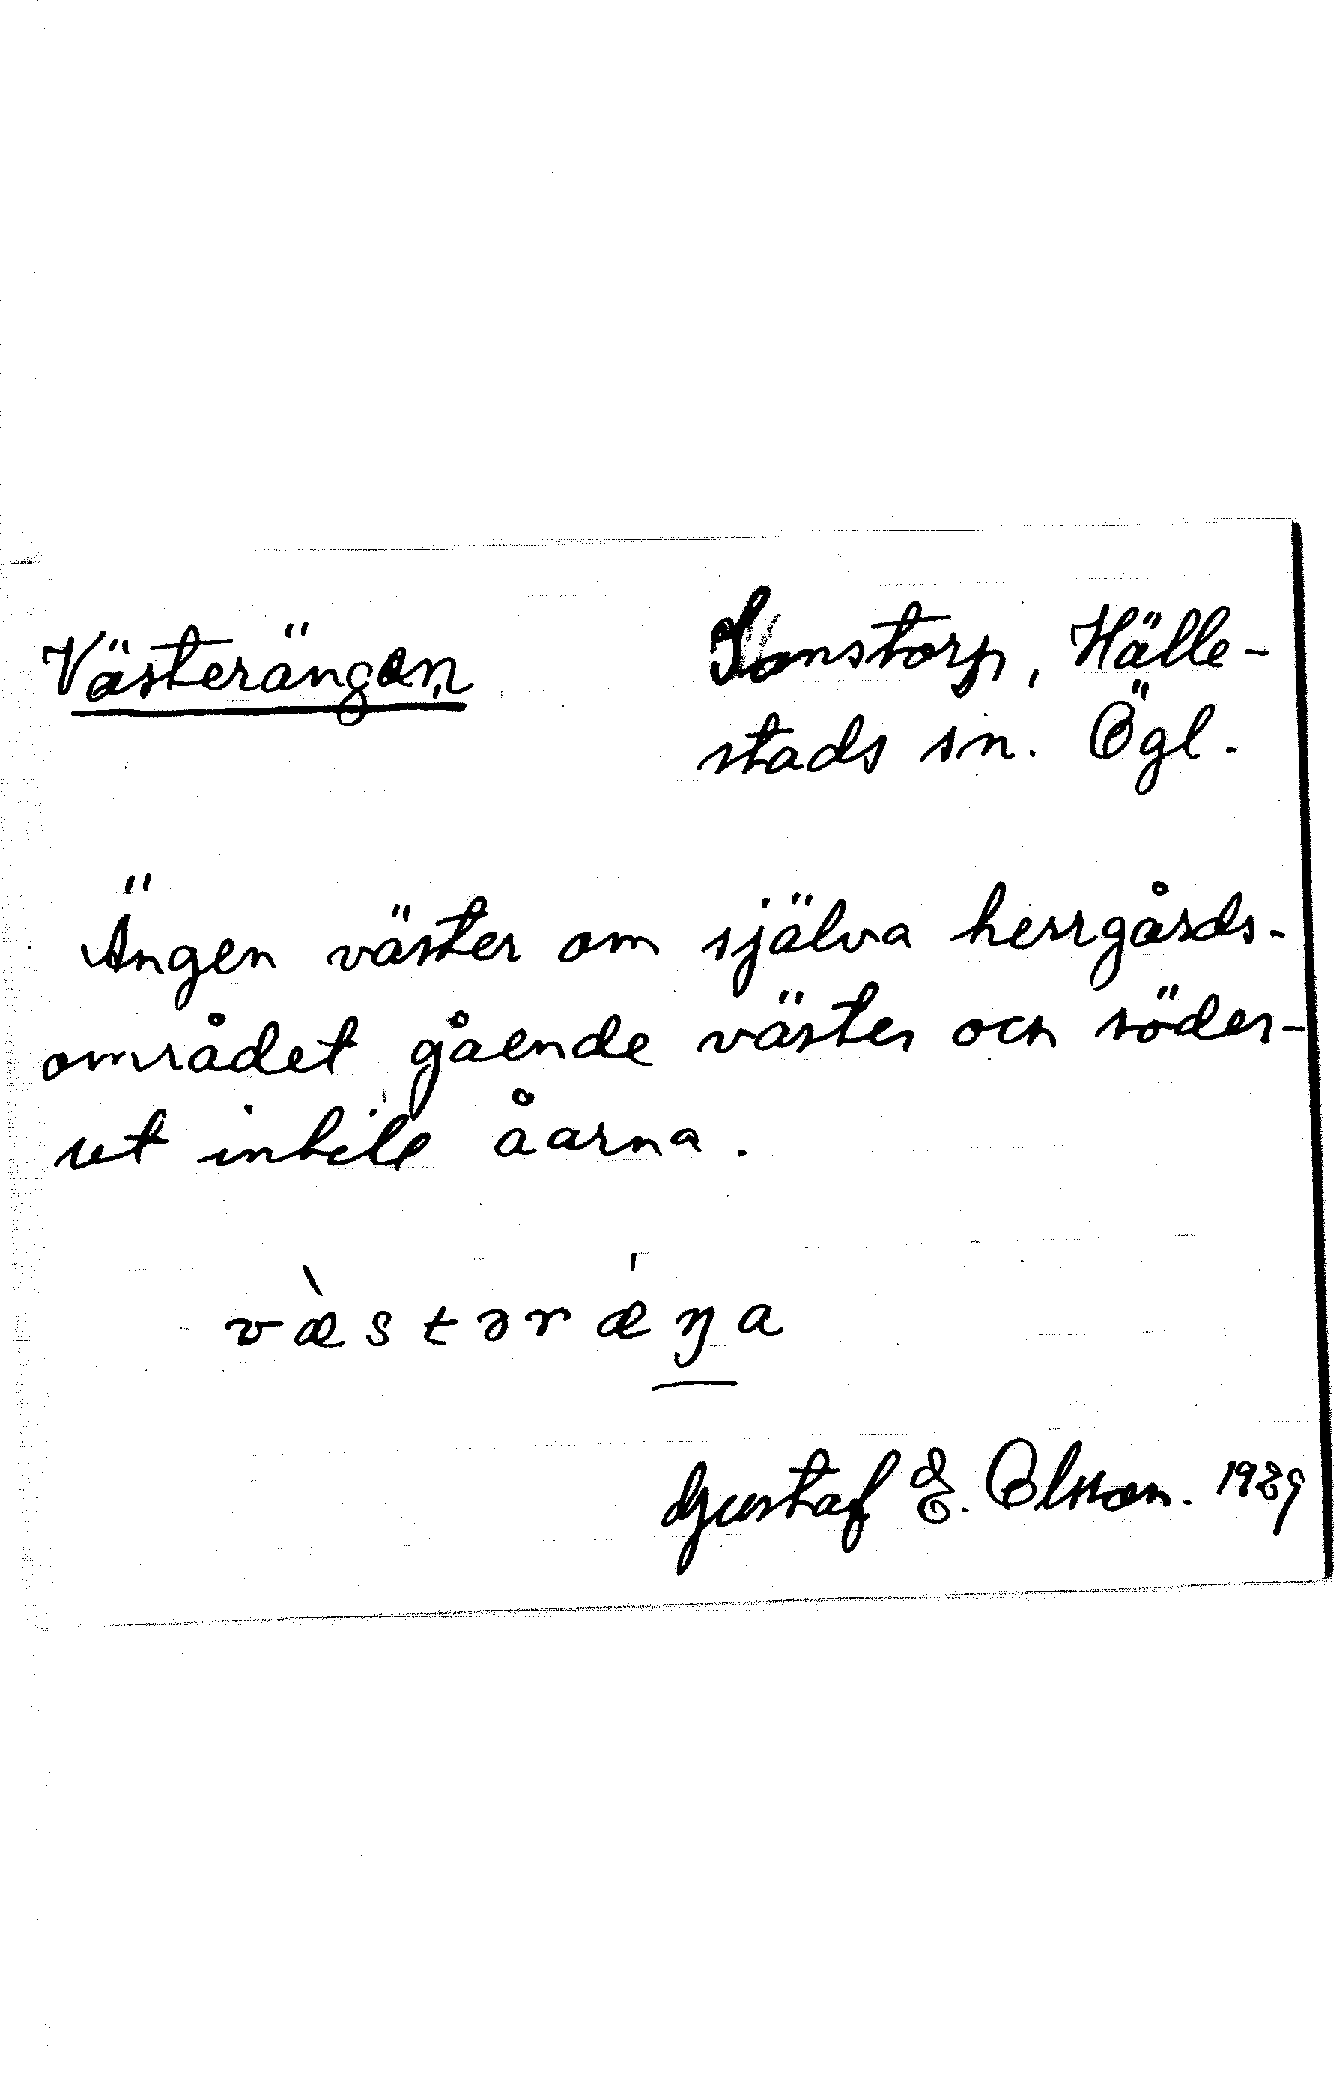 Västerängen
Sonstorp, Hälle-
stads sn. Ögl.
Ängen väster om själva herrgårds-
området gående väster och söder-
ut intill åarna.
væ̀stərǽŋa
Gustaf E. Olsson. 1929